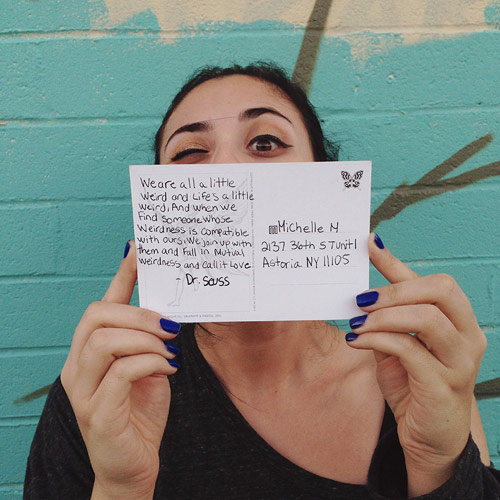 We are all a little
Weird and Life's a little
Weird, And when we
Find someone whose
Weirdness is compatible
with ours, We join up with
them and fall in Mutual
weirdness and call it Love
- Dr. Seuss
Michelle M
2137 36th ST Unit 1
Astoria NY 11105